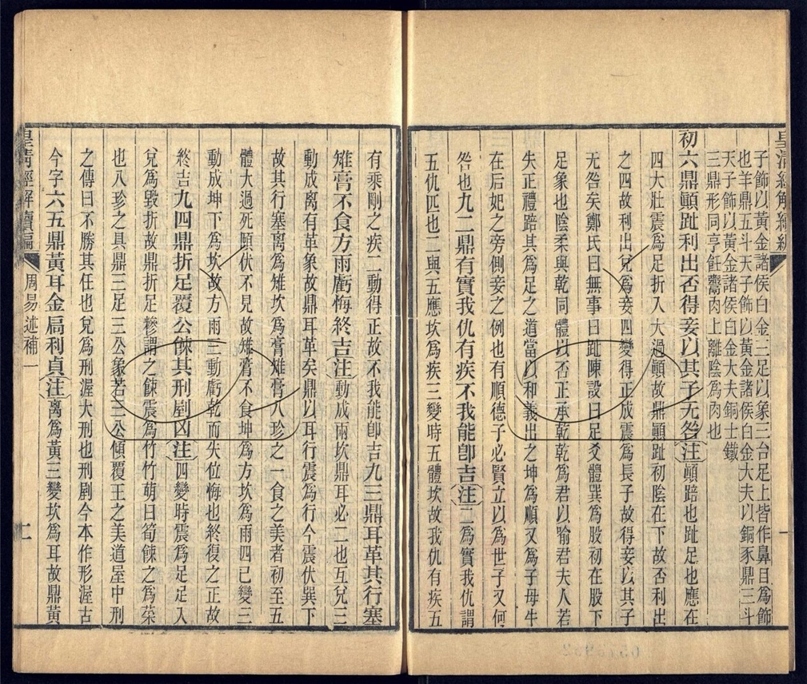 皇淸經解續編
子飾以黃金諸侯白金三足以象三台足上皆作鼻目爲飾
也羊鼎五斗天子飾以黃金諸侯白金大夫以銅豕鼎三斗
天子飾以黃金諸侯白金大夫銅士鐵
三鼎形同亨飪鬻肉上離陰爲肉也
初六鼎顚趾利出否得妾以其子无咎注顚踣也趾足也應在
四大壯震爲足折入大過顚故鼎顚趾初陰在下故否利出
之四故利出兌爲妾四變得正成震爲長子故得妾以其子
无咎矣鄭氏曰無事曰趾陳設曰足爻體巽爲股初在股下
足象也陰柔與乾同體以否正承乾乾爲君以喻君夫人若
失正禮踣其爲足之道當以和義出之坤爲順又爲子母牛
在后妃之旁側妾之例也有順德子必賢立以爲世子又何
咎也九二鼎有實我仇有疾不我能卽吉注二爲實我仇謂
五仇匹也二與五應坎爲疾三變時五體坎故我仇有疾五
一
有乘剛之疾二動得正故不我能卽吉九三鼎耳革其行塞
雉膏不食方雨虧悔終吉注動成兩坎鼎耳必二也互兌三
動成離有革象故鼎耳革矣鼎以耳行震爲行今震伏巽下
故其行塞離爲雉坎爲膏雉膏八珍之一食之美者初至五
體大過死顚伏不見故雉膏不食坤爲方坎爲雨四已變三
動成坤下爲坎故方雨三動虧乾而失位悔也終復之正故
終吉九四鼎折足覆公餗其刑剭凶注四變時震爲足足入
兌爲毀折故鼎折足糝謂之餗震爲竹竹萌曰筍餗之爲菜
也八珍之具鼎三足三公象若三公傾覆王之美道屋中刑
之傳曰不勝其任也兌爲刑渥大刑也刑剭今本作形渥古
今字六五鼎黃耳金扃利貞注離爲黃三變坎爲耳故鼎黃
皇淸經解續編
周易述補一
二